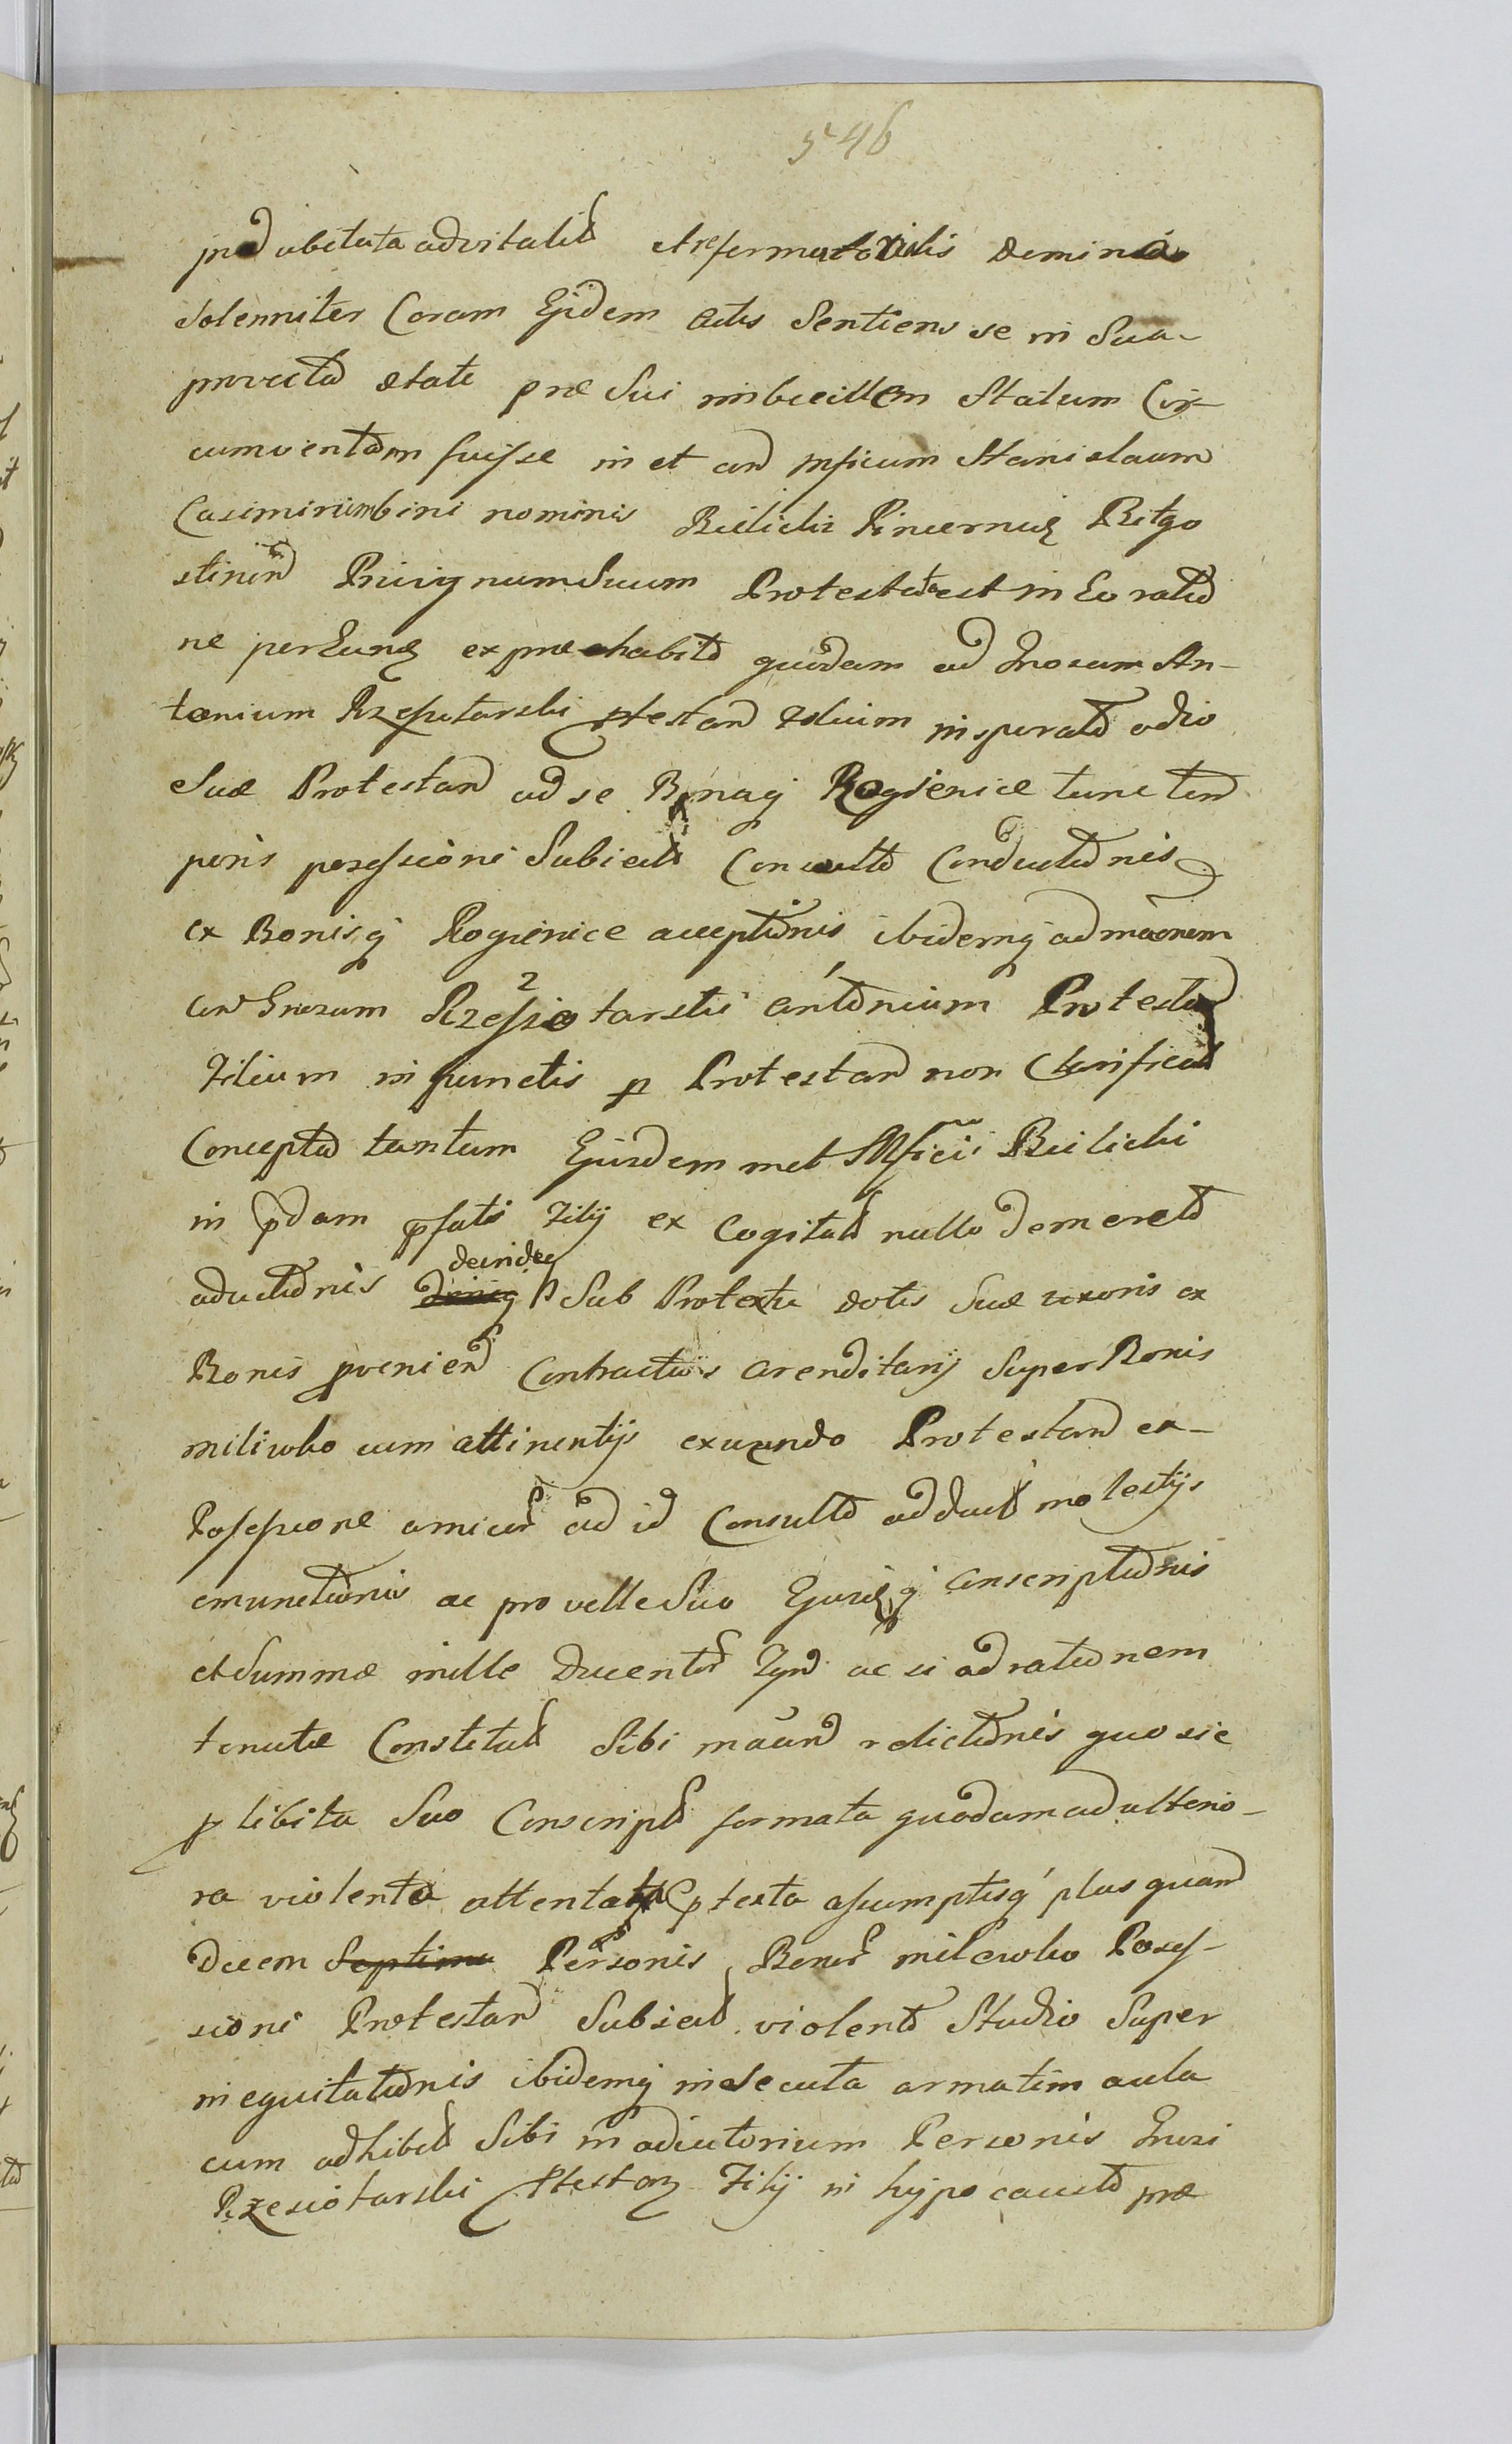 546
indubitata advitalit et reformatorialis Domina
Solenniter Coram Ejsdem Actis Sentiens se in Sua-
provecta ætate præ Sui imbecillem Statum Cir-
cumventam fuisse in et con Mficum Stanislaum
Casimirum bini nominis Bielicki Pincernæ
Privignum Suum Protestata est in Eo ratio
ne perEunq ex præhabito quodam ad Gnosum An-
tonium Rzeszotarski Ptestan Filium insperato odio
Suæ Protestan ad se Bonaq Rogienice tunc tem
poris possessioni Subiect Consulto Conductionis
ex Bonisq Rogienice acceptionis ibidemq ad mãonem
con Gnosum Rzeszotarski Antonium Protestan
Filium in punctis p Protestan non Clarificat
Concepta tantum Ejusdem met Mficii Bielicki
in pdam pfati Filij ex Cogitat nullo demerito
aductionis decidee Sub Protextu dotis Suæ uxoris ex
Bonis pvenien Contractus arenditarij Super Bonis
Milewko cum attinentijs exuendo Protestan ex-
Possessione amicor ad id Consulto adduct molestijs
emunctionis ac pro velle Suo conscriptionis
et Summæ mille Ducentor ac si ad rationem
tenutæ Constitut Sibi relictionis quo sic
p libita Suo Conscript formata quodam ad ulterio-
ra violenta attentata ptexta assumptisq plus quam
Decem Septima Personis Bonor Milewko Posses-
sioni Protestan Subiect violento Studio Super
inequitationis ibidemq insecuta armatim aula
cum adhibit Sibi in adiutorium Personis Gnosi
Rzesiotarski Ptestan Filij in hypocausto præ